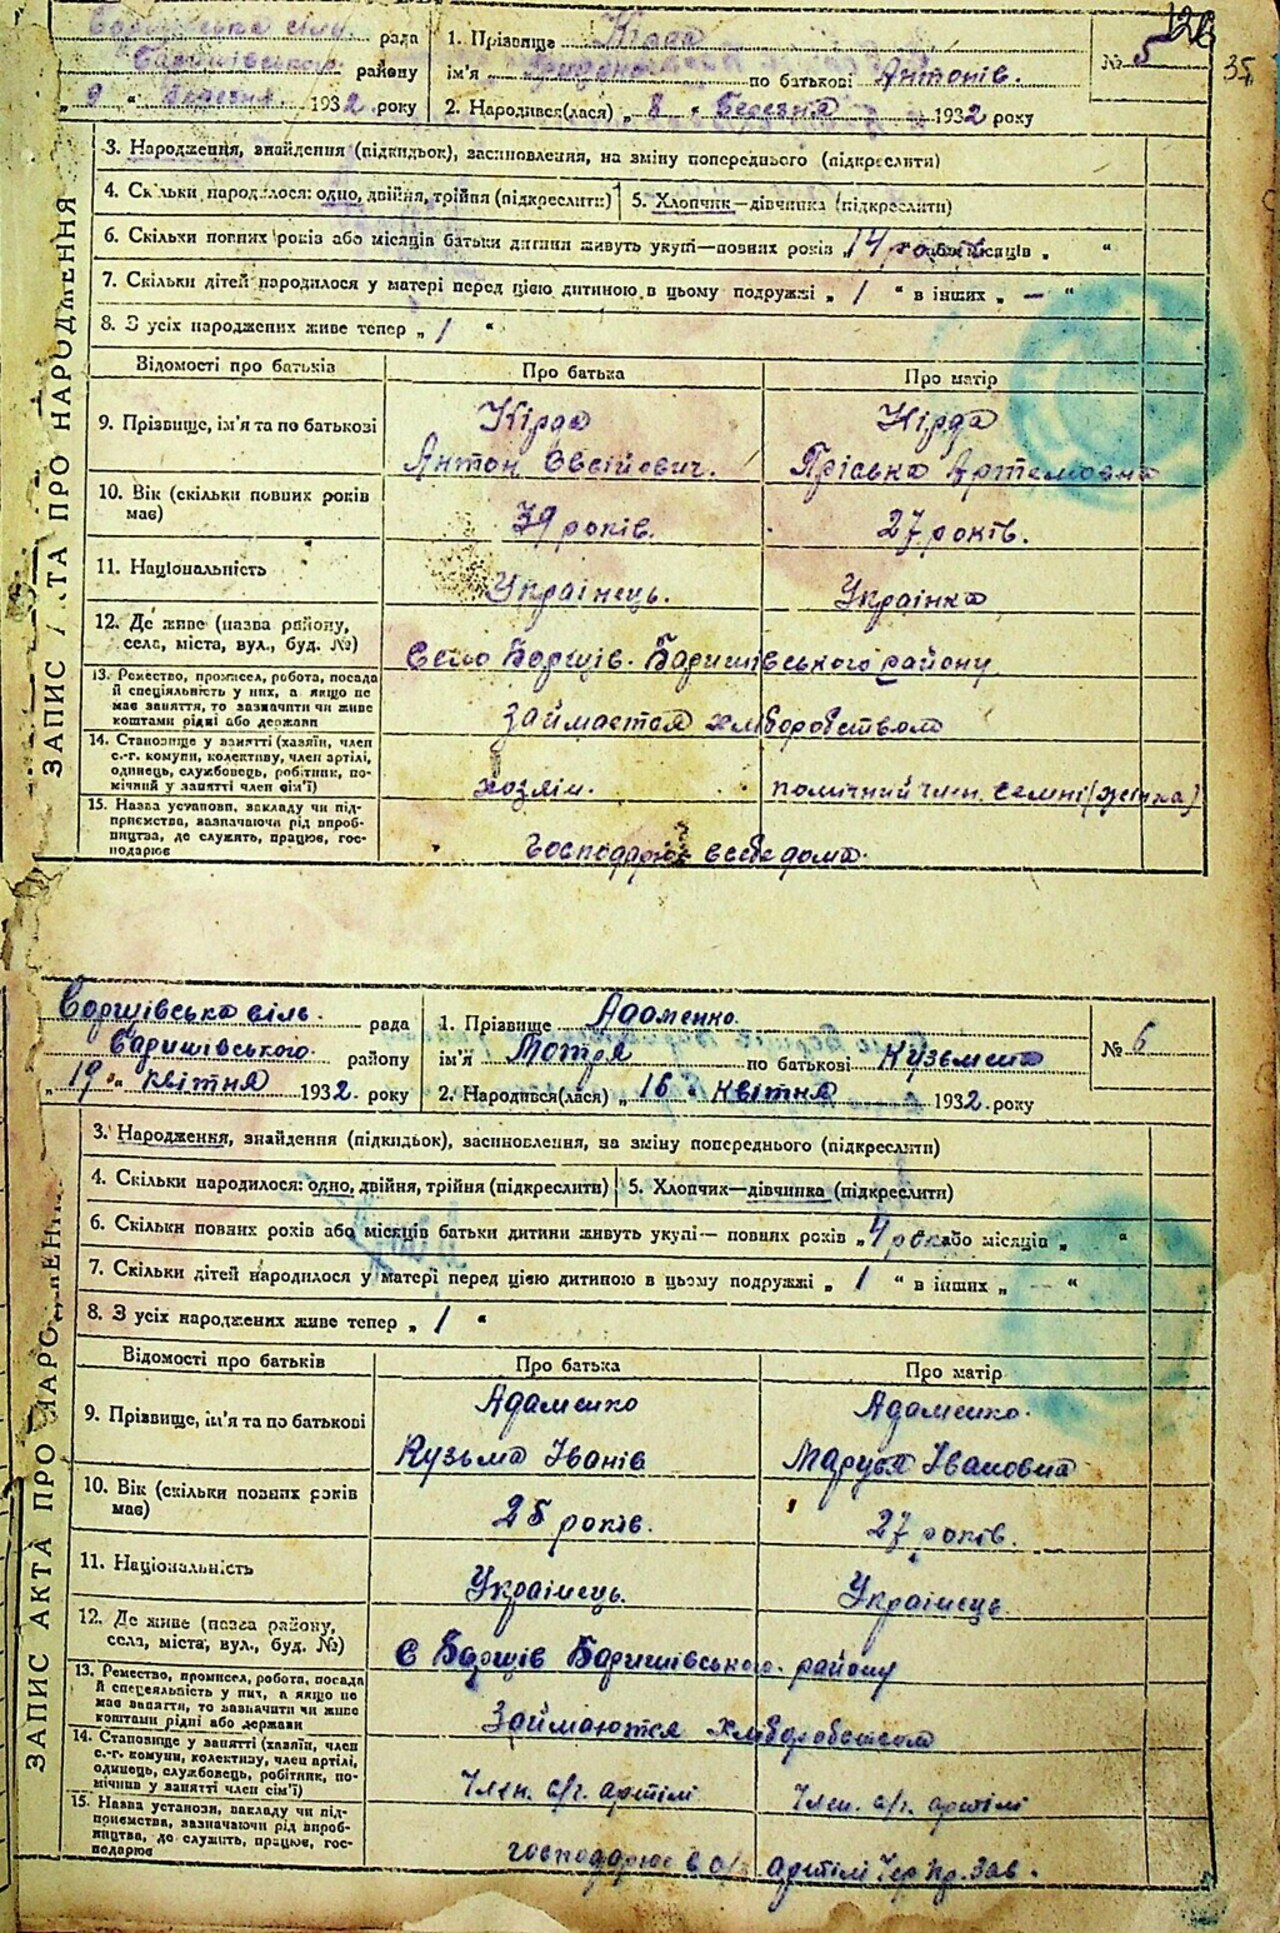 126
35
Борщівська сіль. рада
Баришівськог. району
„ 9 “ березня 1932 року
1. Прізвище Кірда
ім'я по батькові Антонів.
2. Народився(лася) „ 8 “ Березня 1932 року
№ 5
ЗАПИС АКТА ПРО НАРОДЖЕННЯ
3. Народження, знайдення (підкидьок), засиновлення, на зміну попереднього (підкреслити)
4. Скільки народилося: одно, двійня, трійня (підкреслити) 5. Хлопчик—дівчинка (підкреслити)
6. Скільки повних років або місяців батьки дитини живуть укупі—повних років „ 14 років або місяців „ “
7. Скільки дітей народилося у матері перед цією дитиною в цьому подружжі „ 1 “ в інших „ — “
8. З усіх народжених живе тепер „ 1 “
Відомості про батьків Про батька Про матір
9. Прізвище, ім'я та по батькові Кірда Кірда
Антон Овсійович. Пріська Артемовна
10. Вік (скільки повних років має) 39 років. 27 років.
11. Національність Украінець. Украінка
12. Де живе (назва району, села, міста, вул., буд. №) Село Борщів. Баришівського району
13. Ремество, промисел, робота, посада й спеціяльність у них, а якщо не має заняття, то зазначити чи живе коштами рідні або держави
Займается хліборобством
14. Становище у занятті (хазяїн, член с.-г. комуни, колективу, член артілі, одинець, службовець, робітник, помічний у занятті член сім'ї)
хозяін. помічний член. семні (жінка)
15. Назва установи, закладу чи підприємства, зазначаючи рід виробництва, де служить, працює, господарює
Господарює всебе дома.
Борщівська сіль. рада
Баришівського. району
„ 19 “ квітня 1932. року
1. Прізвище Адаменко.
ім'я Мотря по батькові Кузьмина
2. Народився(лася) „ 16 “ квітня 1932. року
№ 6
ЗАПИС АКТА ПРО НАРОДЖЕННЯ
3. Народження, знайдення (підкидьок), засиновлення, на зміну попереднього (підкреслити)
4. Скільки народилося: одно, двійня, трійня (підкреслити) 5. Хлопчик—дівчинка (підкреслити)
6. Скільки повних років або місяців батьки дитини живуть укупі— повних років „ 4 рок або місяців „ “
7. Скільки дітей народилося у матері перед цією дитиною в цьому подружжі „ 1 “ в інших „ — “
8. З усіх народжених живе тепер „ 1 “
Відомості про батьків Про батька Про матір
9. Прізвище, ім'я та по батькові Адаменко Адаменко.
Кузьма Іванів Марувя Івановна
10. Вік (скільки повних років має) 25 років. 27 років.
11. Національність Украінець. Украінець.
12. Де живе (назва району, села, міста, вул., буд. №) с Борщів Баришівського. району
13. Ремество, промисел, робота, посада й спеціяльність у них, а якщо не має заняття, то зазначити чи живе коштами рідні або держави
Займаются хліборобством
14. Становище у занятті (хазяїн, член с.-г. комуни, колективу, член артілі, одинець, службовець, робітник, помічник у занятті член сім'ї)
Член. с/г. артілі Член. с/г. артілі
15. Назва установи, закладу чи підприємства, зазначаючи рід виробництва, де служить, працює, господарює
господарює в с/г. артілі Чер. Пр. Зав.